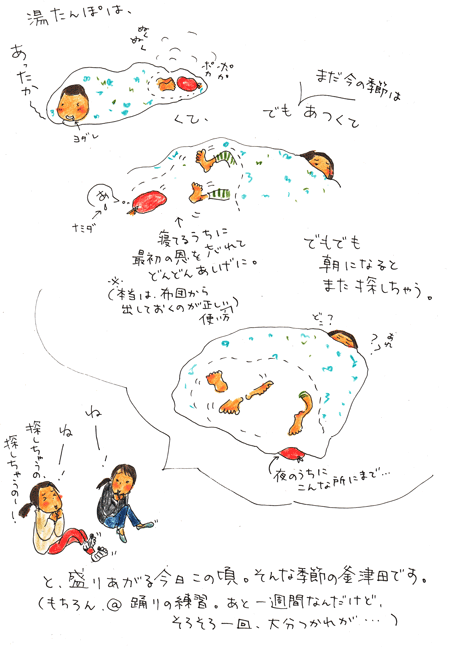 湯たんぽは、
ぬくぬく
ポカポカ
あったか〜
ヨダレ
くて、
まだ今の季節は
でも あつくて
あ。
ナミダ
寝てるうちに
最初の恩を忘れて
どんどんあしげに。
※
(本当は、布団から
出しておくのが正しい
使い方)
でもでも
朝になると
また探しちゃう。
どこ?
??
あれ
夜のうちに
こんな所にまで…
ね〜
ね〜
探しちゃうの、
探しちゃうの〜!
と、盛りあがる今日この頃。そんな季節の釜津田です。
(もちろん、@踊りの練習。あと一週間なんだけど、
そろそろ一回、大分つかれが…)